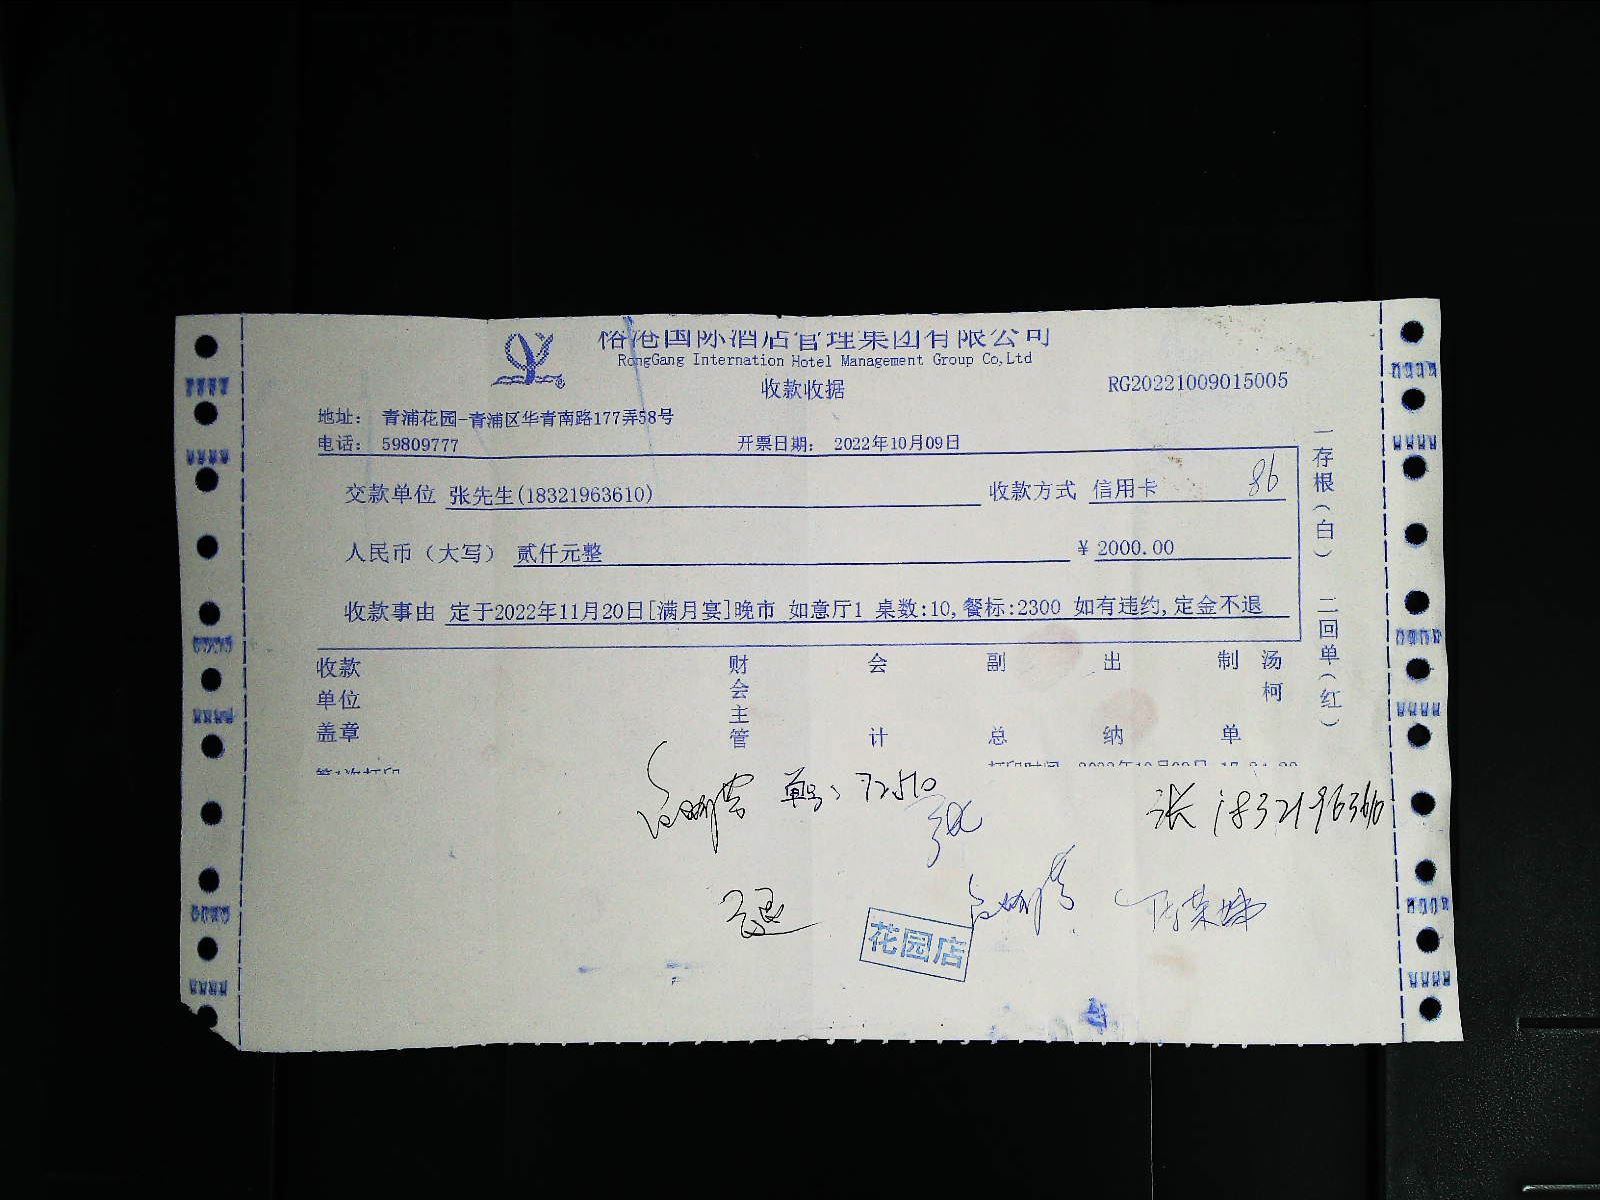 榕港国际酒店管理集团有限公司
RongGang Internation Hotel Management Group Co,Ltd
收款收据
RG20221009015005
地址： 青浦花园-青浦区华青南路177弄58号
电话： 59809777 开票日期： 2022年10月09日
交款单位 张先生(18321963610) 收款方式 信用卡 86
人民币（大写） 贰仟元整 ¥ 2000.00
收款事由 定于2022年11月20日[满月宴]晚市 如意厅1 桌数:10,餐标:2300 如有违约,定金不退
一存根（白） 二回单（红）
收款单位盖章 财会主管 会计 副总 出纳 制单 汤柯
第1次打印
单号: 72510
张 18321963610
花园店